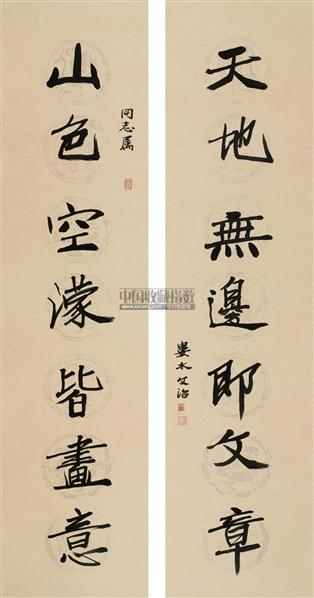 天地無邊即文章
婁水文治
同志属
山色空濛皆畫意
中国收藏指数